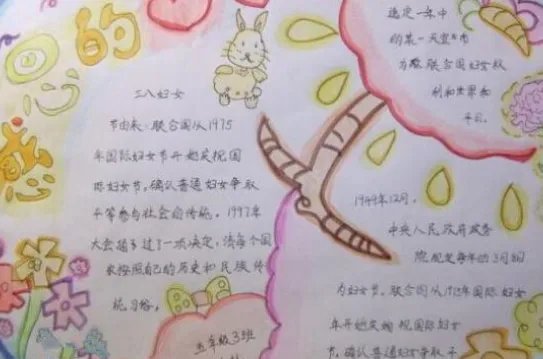 恩的
三八妇女
节由来:联合国从1975
年国际妇女节开始庆祝国
际妇女节。确认普通妇女争取
平等参与社会的传统。1997年
大会通过了一项决定,请每个国
家按照自己的历史和民族传
统习俗,
五年级3班
选定一年中
的某一天宣布
为联合国妇女权
利和世界和
平日。
1949年12月,
中央人民政府政务
院规定每年的3月8日
为妇女节。联合国从1975年国际妇女
年开始庆祝国际妇女
节,确认普通妇女争取平